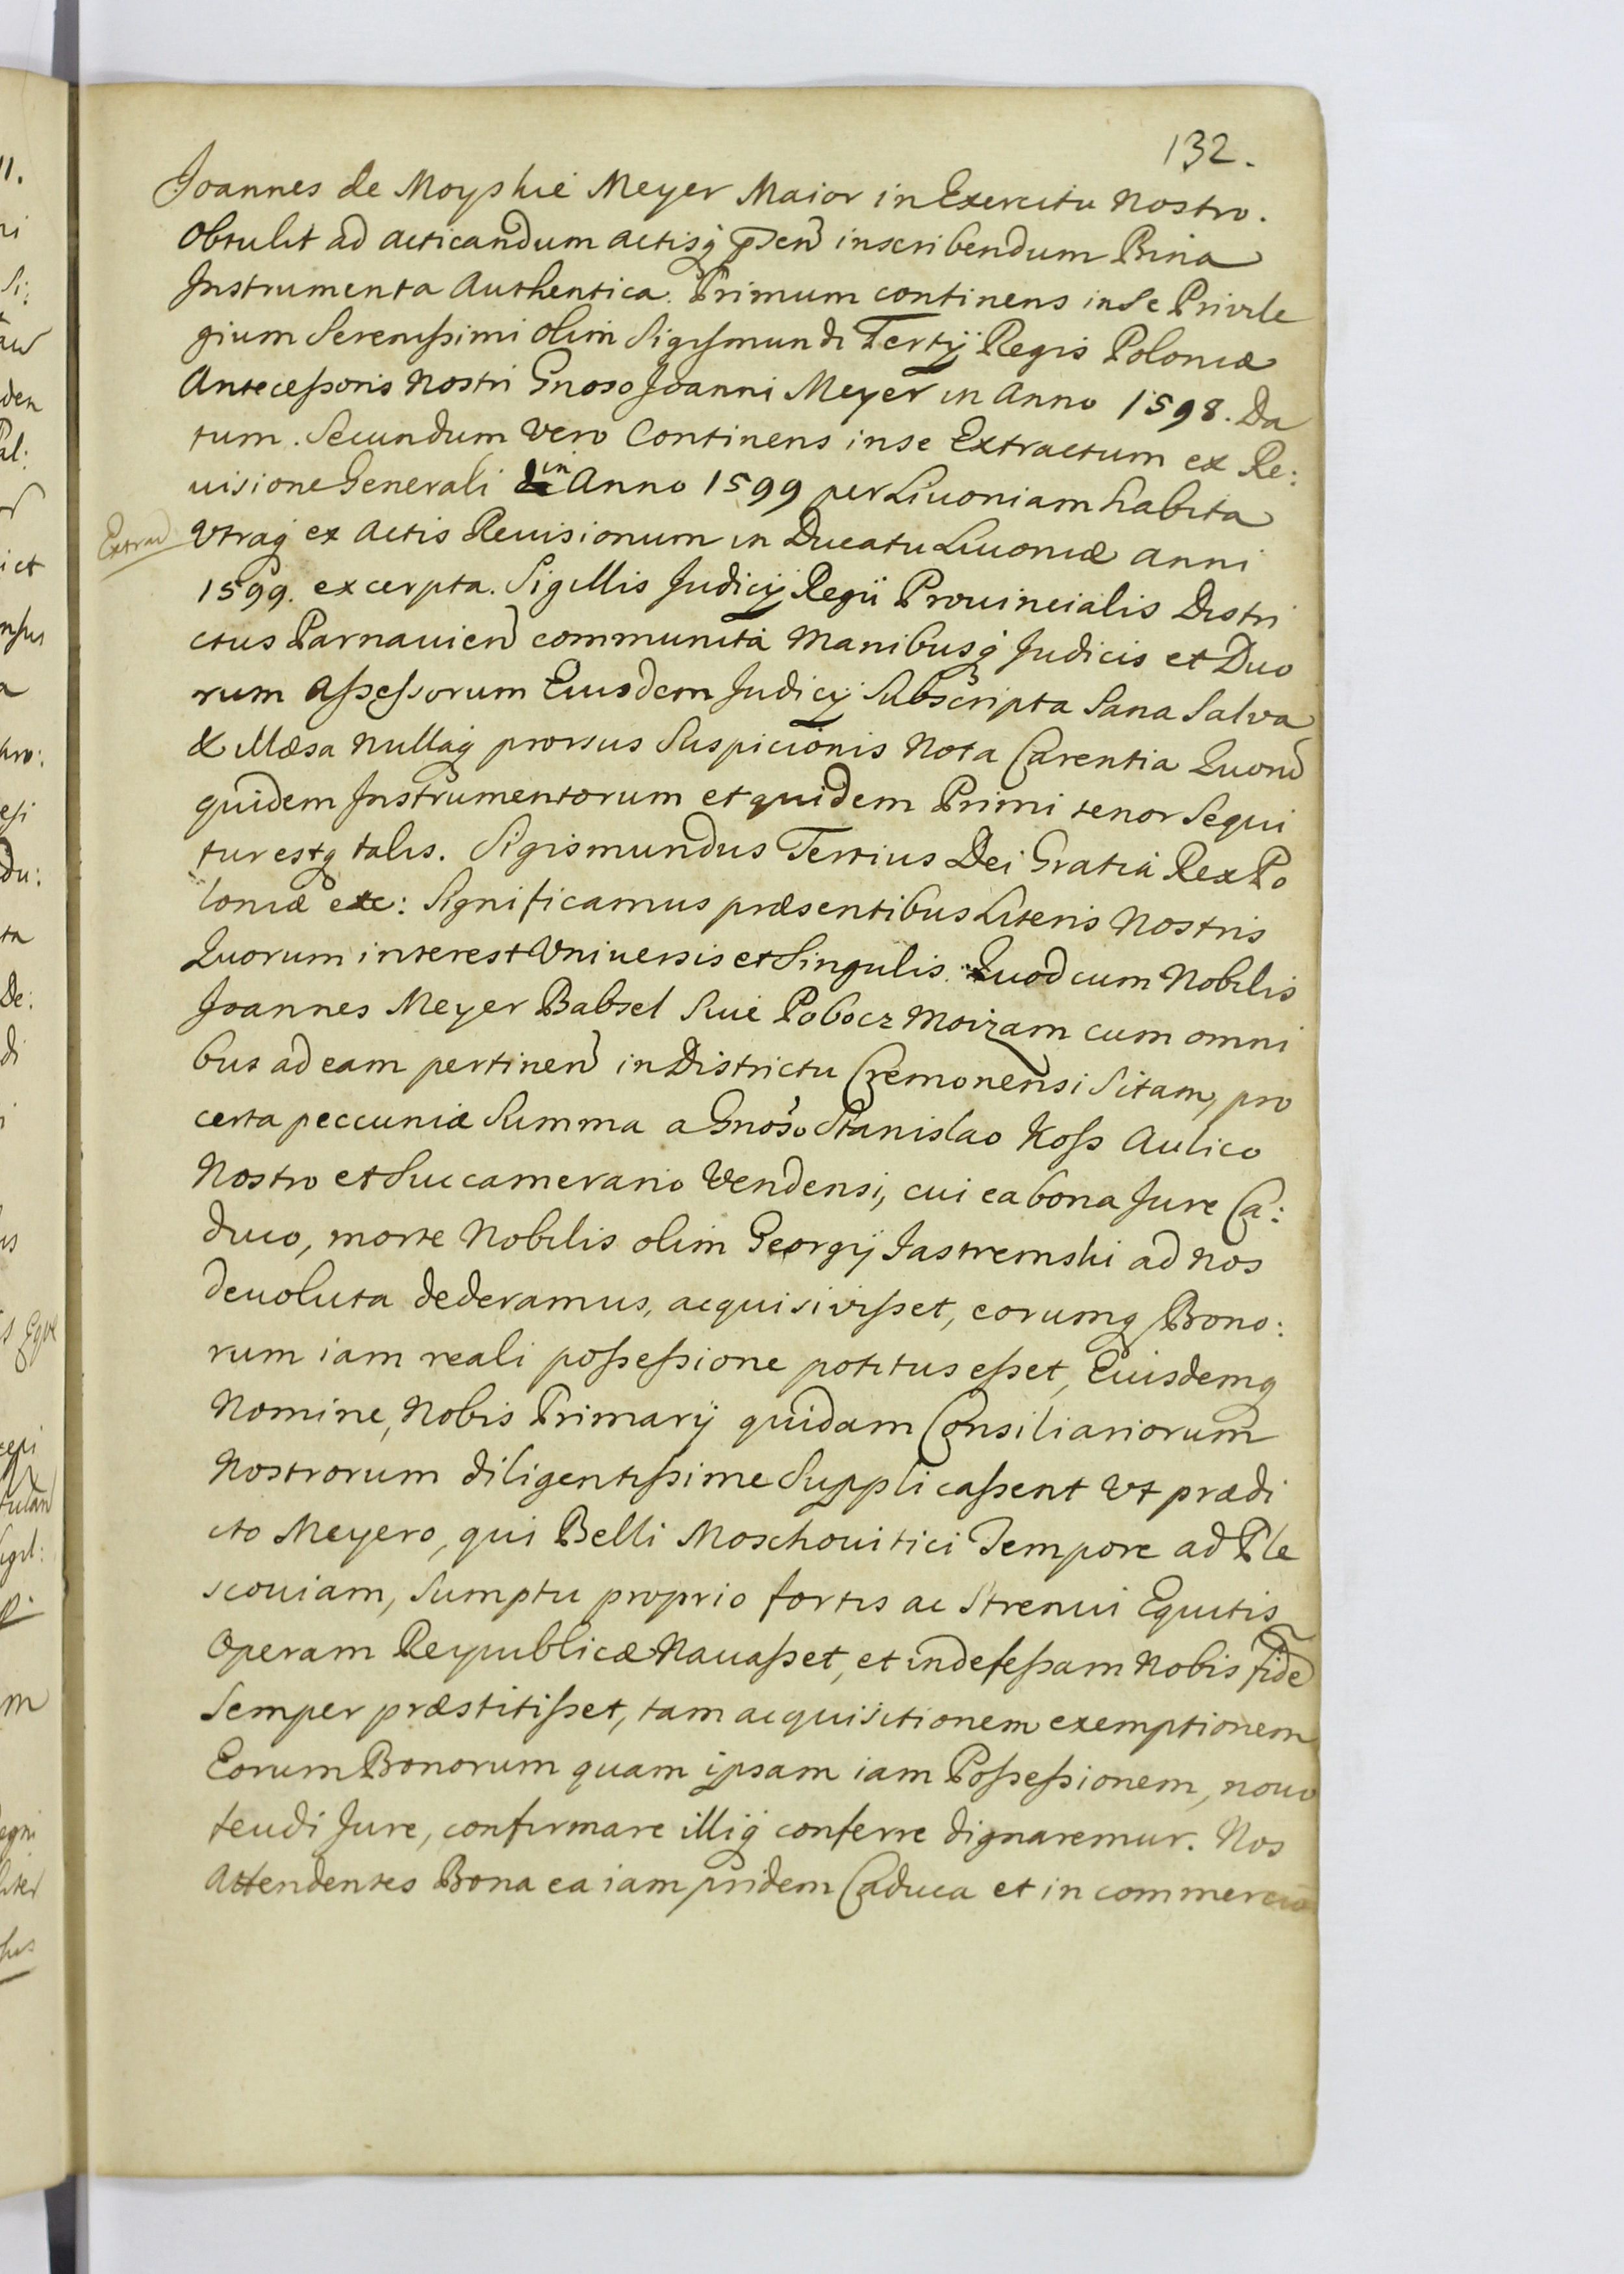 132.
Joannes de Moyskie Meyer Maior in Exercitu Nostro.
Obtulit ad acticandum actisq͛ p̄sen̄ inscribendum Bina
Instrumenta Authentica. Primum continens in Se Privile
gium Serenissimi olim Sigismundi Tertij Regis Poloniæ
Antecessoris Nostri Gnoso Joanni Meyer in Anno 1598. Da
tum. Secundum vero Continens in se Extractum ex Re:
uisione Generali in Anno 1599 per Liuoniam habita
Extrad
Vtraq͛ ex Actis Reuisionum in Ducatu Liuoniæ Anni
1599. excerpta. Sigillis Judicij Regii Prouincialis Distri
ctus Parnauien̄ communita Manibusq͛ Judicis et Duo
rum Assessorum Eiusdem Judicij Subscripta Sana Salva
& illæsa Nullaq͛ prorsus Suspicionis Nota Carentia Quoru͂
quidem Instrumentorum et quidem Primi tenor Sequi
tur estq͛ talis. Sigismundus Tertius Dei Gratia Rex Po
loniæ etc: Significamus præsentibus Literis Nostris
Quorum interest Vniuersis et Singulis. Quod cum Nobilis
Joannes Meyer Babsel Siue Pobocz Moizam cum omni
bus ad eam pertinen̄ in Districtu Cremonensi Sitam, pro
certa peccuniæ Summa a Gnoso Stanislao Koss Aulico
Nostro et Succamerario Vendensi, cui ea bona Jure Ca:
duco, morte Nobilis olim Georgij Jastremski ad Nos
deuoluta dederamus, acquisivisset, eorumq͛ Bono:
rum iam reali possessione potitus esset, Eiusdemq͛
Nomine, Nobis Primarij quidam Consiliariorum
Nostrorum diligentissime Supplicassent Vt prædi
cto Meyero, qui Belli Moschouitici Tempore ad Ple
scouiam, Sumptu proprio fortis ac Strenui Equitis
Operam Reipublicæ Nauasset, et indefessam Nobis fide͂
Semper præstitisset, tam acquisitionem exemptionem
Eorum Bonorum quam ipsam iam Possessionem, nouo
feudi Jure, confirmare illiq͛ conferre dignaremur. Nos
Attendentes Bona ea iam pridem Caduca et in commercio